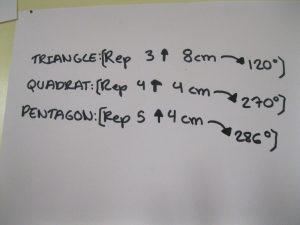 TRIANGLE:[Rep 3 ⬆ 8cm ↘ 120°]
QUADRAT:[Rep 4 ⬆ 4 cm ↘ 270°]
PENTAGON:[Rep 5 ⬆ 4 cm ↘ 286°]